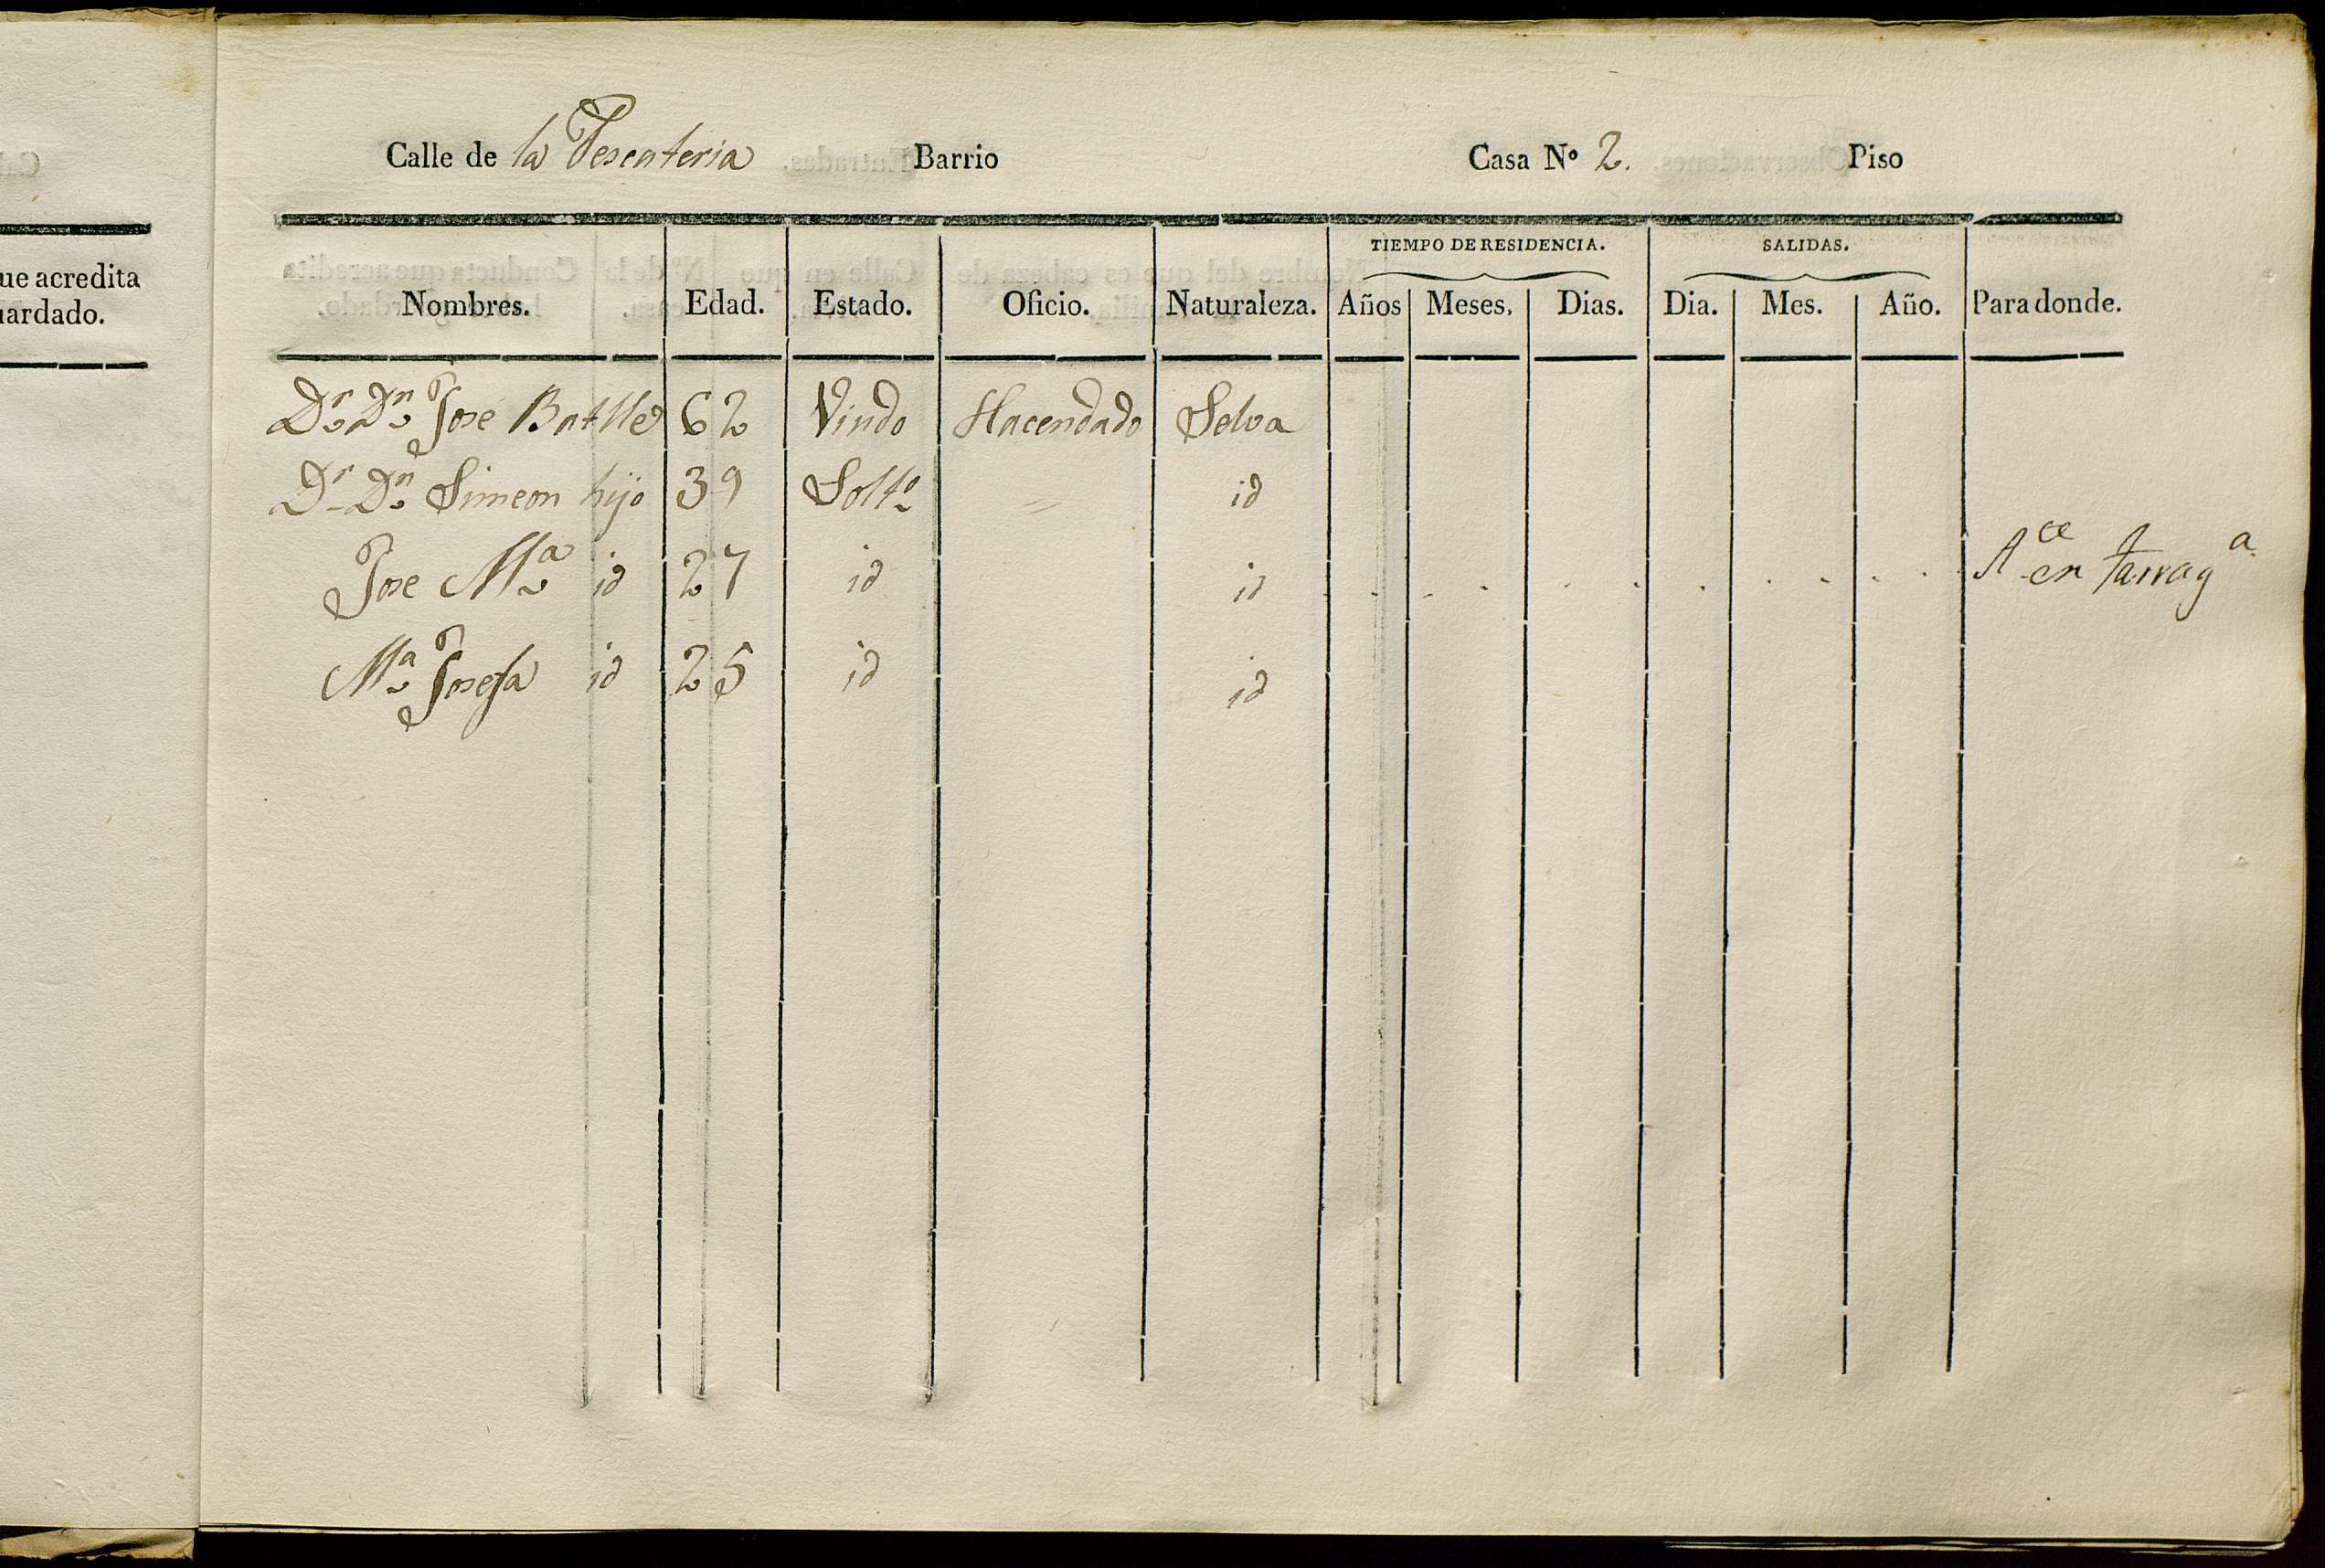 ue acredita
uardado.
Calle de la Pescateria Barrio Casa Nº 2. Piso
TIEMPO DE RESIDENCIA. SALIDAS.
Nombres. Edad. Estado. Oficio. Naturaleza. Años Meses. Dias. Dia. Mes. Año. Para donde.
Dr. Dn. José Batlle 62 Viudo Hacendado Selva
Dr. Dn. Simeon hijo 39 Solto. = id
Jose Ma. id 27 id id . . . . . . . . . . . . Ace. en Tarraga.
Ma. Josefa id 25 id id